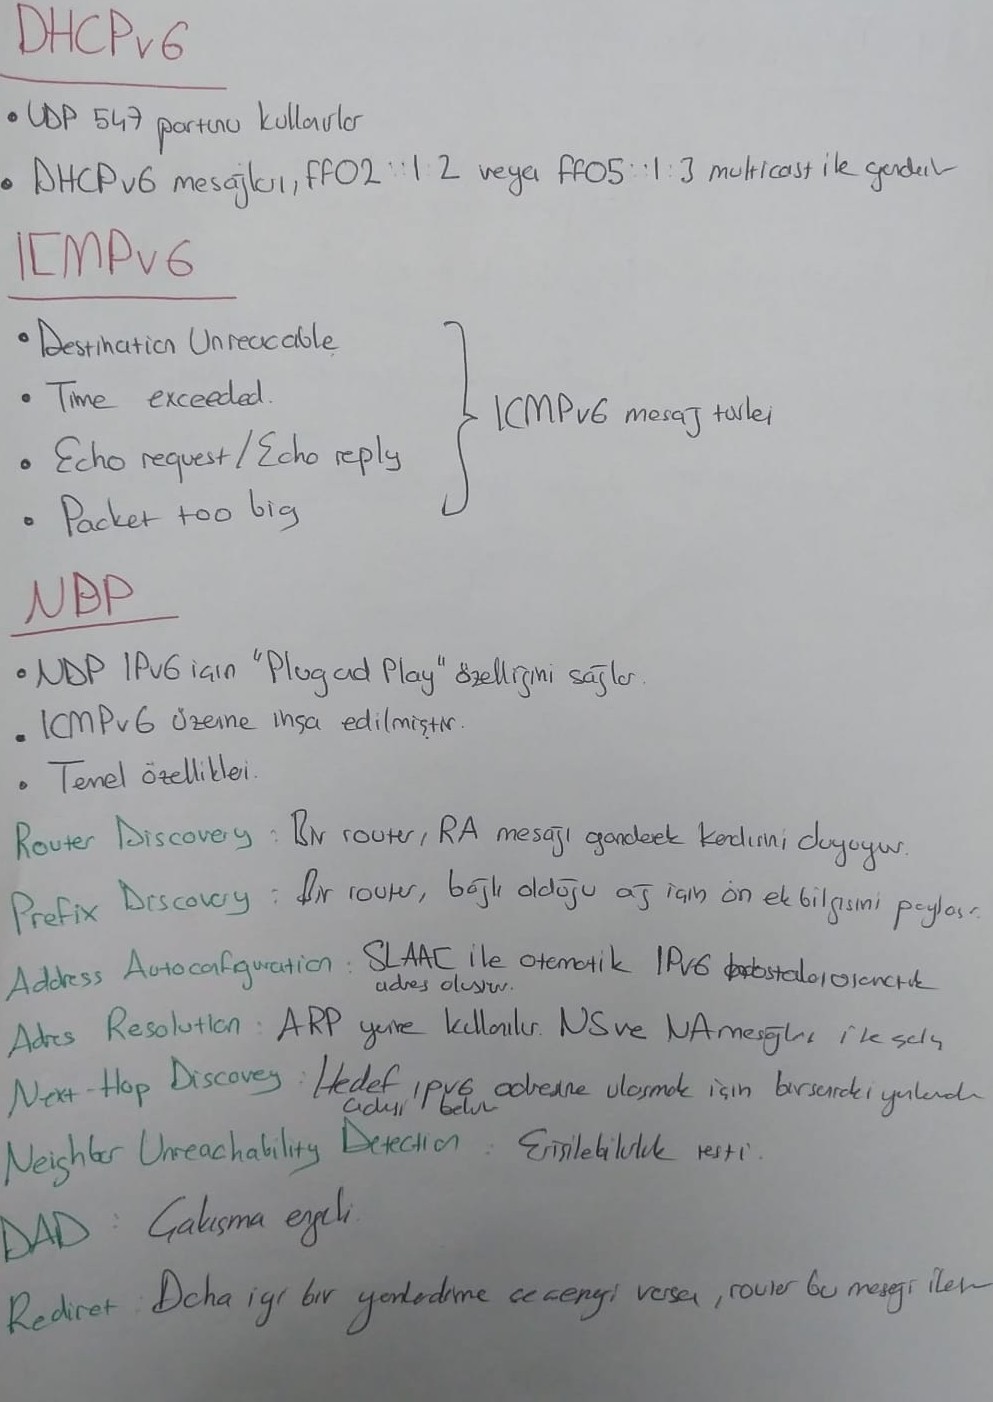 DHCPv6
• UDP 547 portunu kullanırlar
• DHCPv6 mesajları, ff02::1:2 veya ff05::1:3 multicast ile gönderilir
ICMPv6
• Destination Unreacable
• Time exceeded.
• Echo request/Echo reply
• Packet too big
ICMPv6 mesaj türleri
NDP
• NDP IPv6 için "Plug and Play" özelliğini sağlar.
• ICMPv6 üzerine inşa edilmiştir.
• Temel özellikleri.
Router Discovery : Bir router, RA mesajı göndererek kendisini duyuyur.
Prefix Discovery : Bir router, bağlı olduğu ağ için ön ek bilgisini paylaşır.
Address Autoconfiguration : SLAAC ile otomatik IPv6
adres oluşur.
Adres Resolution : ARP yerine kullanılır. NS ve NA mesajları ile
Next-Hop Discovey : Hedef IPv6 adresine ulaşmak için bir sonraki
adayı belir
Neighbor Unreachability Detection : Erişilebilirlik testi.
DAD : Çakışma engeli.
Rediret : Daha iyi bir yönlendirme varsa, router bu mesajı iletir